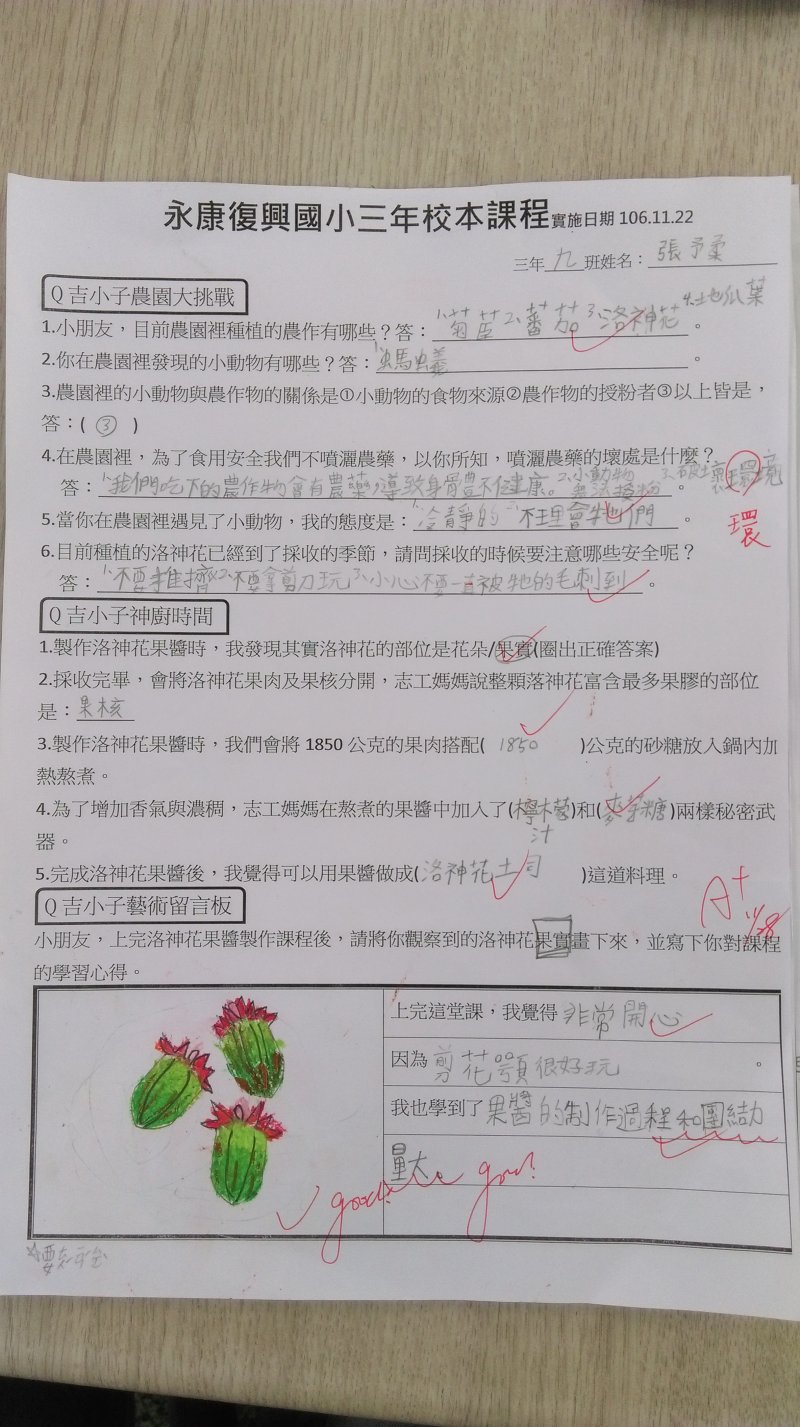 永康復興國小三年校本課程實施日期 106.11.22
三年 九 班姓名：張予柔
Q 吉小子農園大挑戰
1.小朋友，目前農園裡種植的農作有哪些？答：1.茼苣 2.蕃茄 3.洛神花 4.地瓜葉。
2.你在農園裡發現的小動物有哪些？答：1.螞蟻。
3.農園裡的小動物與農作物的關係是①小動物的食物來源②農作物的授粉者③以上皆是，
答：( ③ )
4.在農園裡，為了食用安全我們不噴灑農藥，以你所知，噴灑農藥的壞處是什麼？
答：1.我們吃下的農作物會有農藥，導致身體不健康。2.小動物無法授粉。3.破壞環境
環
5.當你在農園裡遇見了小動物，我的態度是：1.冷靜的 2.不理會牠們。
6.目前種植的洛神花已經到了採收的季節，請問採收的時候要注意哪些安全呢？
答：1.不要推擠 2.不要拿剪刀玩 3.小心不要一直被牠的毛刺到。
Q 吉小子神廚時間
1.製作洛神花果醬時，我發現其實洛神花的部位是花朵/果實(圈出正確答案)
2.採收完畢，會將洛神花果肉及果核分開，志工媽媽說整顆落神花富含最多果膠的部位
是：果核
3.製作洛神花果醬時，我們會將 1850 公克的果肉搭配( 1850 )公克的砂糖放入鍋內加
熱熬煮。
4.為了增加香氣與濃稠，志工媽媽在熬煮的果醬中加入了(檸檬汁)和(麥芽糖)兩樣秘密武
器。
5.完成洛神花果醬後，我覺得可以用果醬做成(洛神花土司 )這道料理。
A+
11/28
Q 吉小子藝術留言板
小朋友，上完洛神花果醬製作課程後，請將你觀察到的洛神花果實畫下來，並寫下你對課程
的學習心得。
上完這堂課，我覺得 非常開心
因為 剪花萼很好玩。
我也學到了果醬的制作過程和團結力
量大。
good! good!